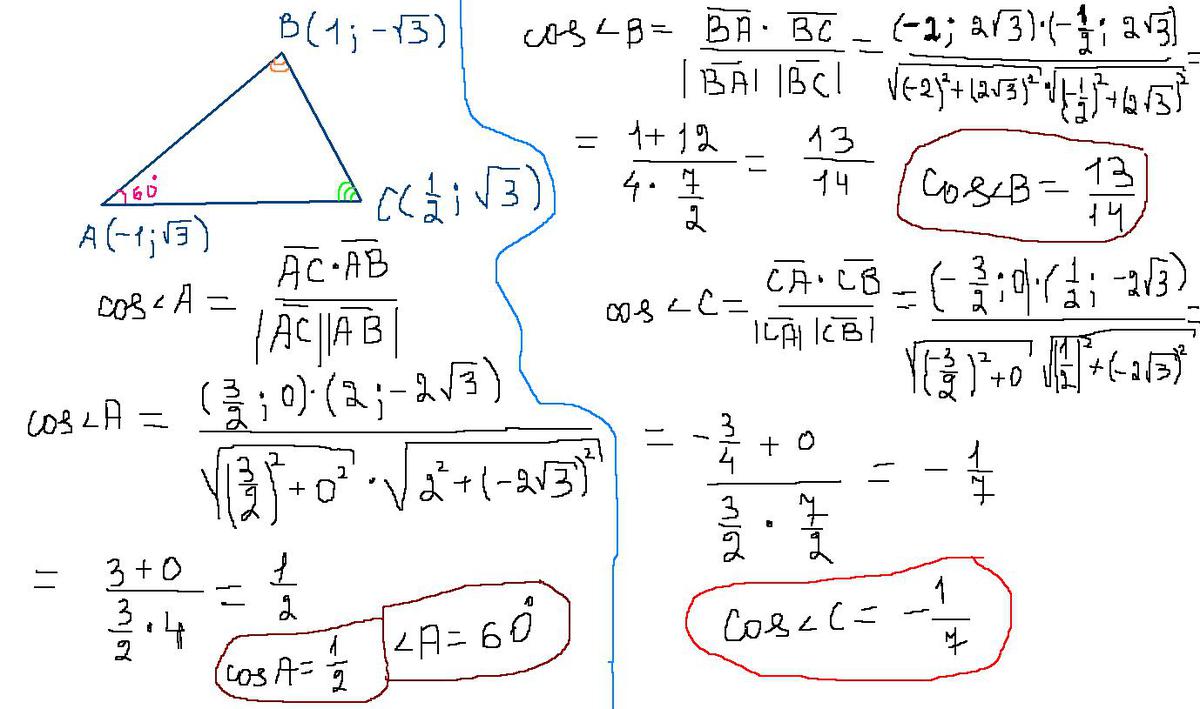 B(1; -√3)
60°
A(-1; √3)
C(1/2; √3)
cos∠A = (AC̅ · AB̅) / (|AC̅||AB̅|)
cos∠A = ((3/2; 0)·(2; -2√3)) / (√((3/2)² + 0²) · √(2² + (-2√3)²))
= (3+0) / (3/2 · 4) = 1/2
cos A = 1/2
∠A = 60°
cos∠B = (BA̅ · BC̅) / (|BA̅| |BC̅|) = ((-2; 2√3)·(-1/2; 2√3)) / (√((-2)² + (2√3)²) · √((-1/2)² + (2√3)²)) =
= (1+12) / (4 · 7/2) = 13/14
cos∠B = 13/14
cos∠C = (CA̅ · CB̅) / (|CA̅| |CB̅|) = ((-3/2; 0)·(1/2; -2√3)) / (√((-3/2)² + 0) √((1/2)² + (-2√3)²)) =
= (-3/4 + 0) / (3/2 · 7/2) = -1/7
cos∠C = -1/7